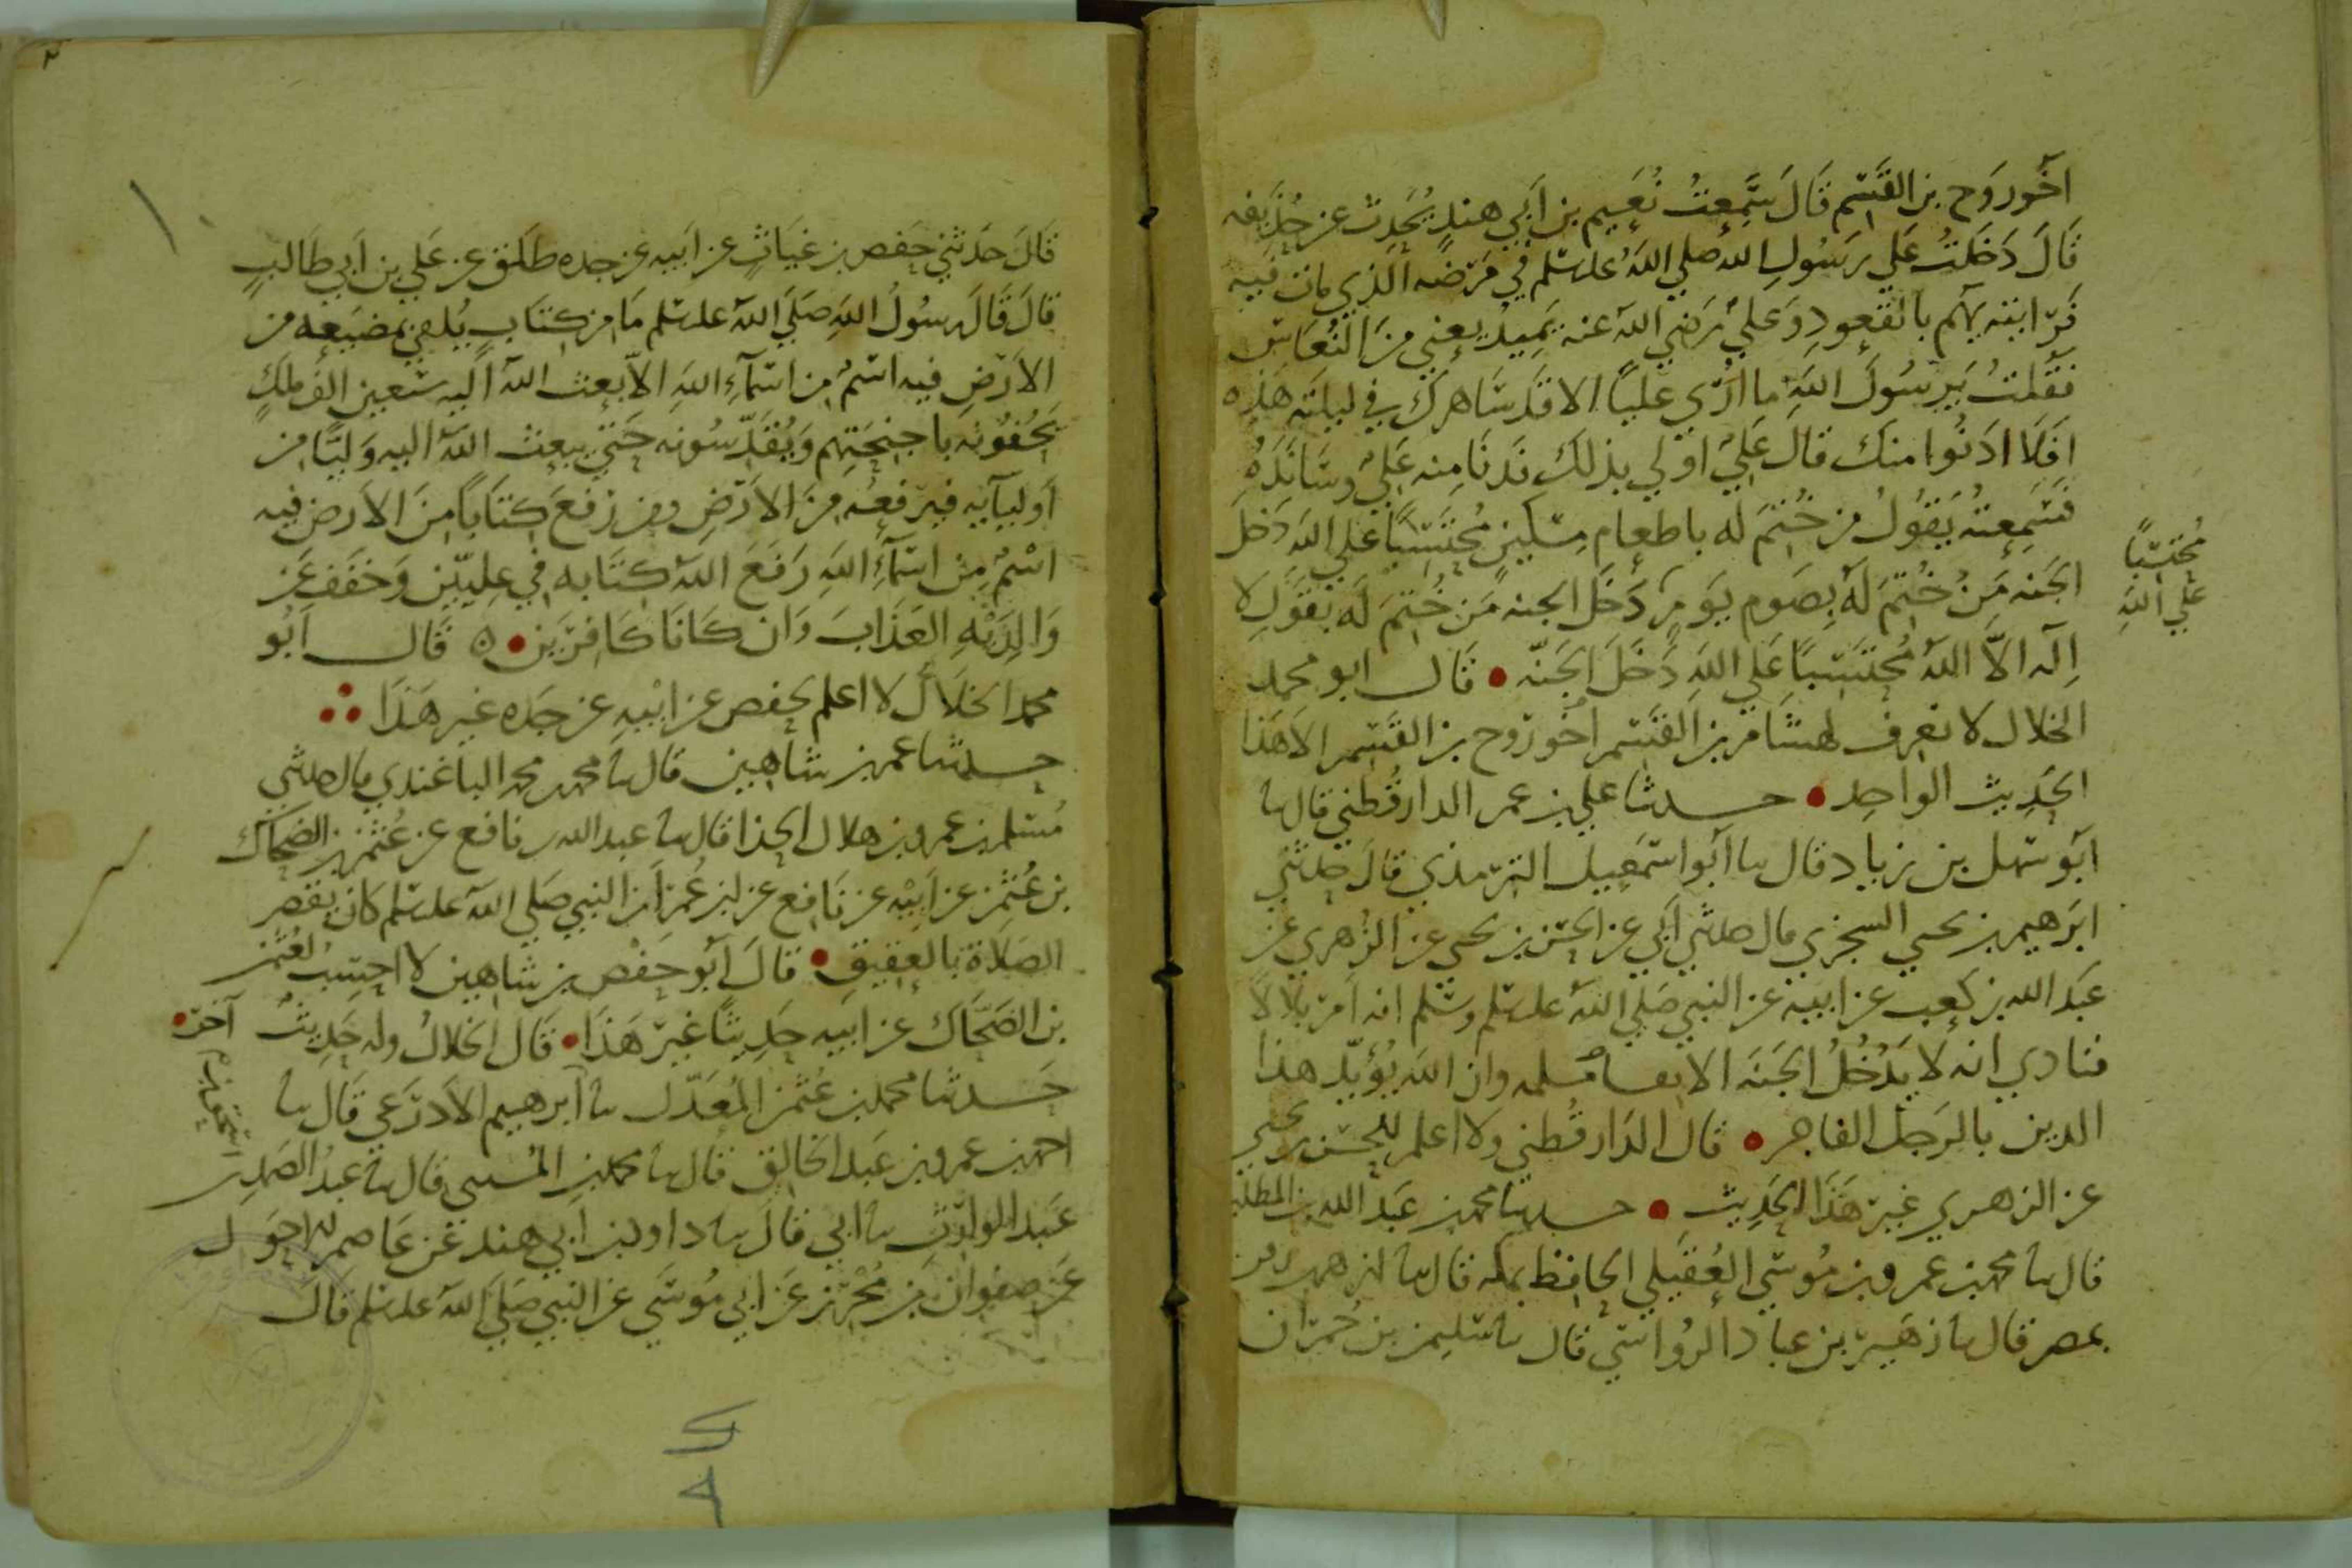 اخو روح بن القسم قال سمعت نعيم بن ابي هند يحدث عن حذيفه
قال دخلت على رسول الله صلى الله عليه وسلم في مرضه الذي مات فيه
فرايته يهم بالقعود وعلي رضي الله عنه يميد يعني من النعاس
فقلت يرسول الله ما ارى عليا الا قد ساهرك في ليلته هذه
افلا ادنوا منك قال علي اولى بذلك فدنا منه علي وسانده
فسمعته يقول من ختم له باطعام مسكين محتسبا على الله دخل
الجنه من ختم له بصوم يوم دخل الجنه من ختم له بقول لا
اله الا الله محتسبا على الله دخل الجنه • قال ابو محمد
الخلال لا نعرف لهشام بن القسم اخو روح بن القسم الا هذا
الحديث الواحد • حدثنا علي بن عمر الدارقطني قال نا
ابو سهل بن زياد قال نا ابو اسمعيل الترمذي قال حدثني
ابرهيم بن يحيى السجزي قال حدثني ابي عن الحسن بن يحيى عن الزهري عن
عبد الله بن كعب عن ابيه عن النبي صلى الله عليه وسلم انه امر بلالا
فنادي انه لا يدخل الجنه الا نفس مسلمه وان الله يؤيد هذا
الدين بالرجل الفاجر • قال الدارقطني ولا اعلم للحسن بن يحيى
عن الزهري غير هذا الحديث • حدثنا محمد بن عبد الله بن المطلب
قال نا محمد بن عمرو بن موسى العقيلي الحافظ بمكه قال نا
بمصر قال نا زهير بن عباد الرواسي قال نا سليمن بن حمران
محتسبا
على الله
قال حدثني حفص بن غياث عن ابيه عن جده طلق عن علي بن ابي طالب
قال قال رسول الله صلى الله عليه وسلم ما من كتاب يلقى بمضيعه من
الارض فيه اسم من اسماء الله الا بعث الله اليه سبعين الف ملك
يحفونه باجنحتهم ويقدسونه حتى يبعث الله اليه وليا من
اوليآيه فيرفعه من الارض ومن رفع كتابا من الارض فيه
اسم من اسماء الله رفع الله كتابه في عليين وخفف عن
والديه العذاب وان كانا كافرين • ه قال ابو
محمد الخلال لا اعلم لحفص عن ابيه عن جده غير هذا
حدثنا عمر بن شاهين قال نا محمد بن محمد الباغندي قال حدثني
مسلم بن عمرو بن هلال الحذا قال نا عبد الله بن نافع عن عثمن بن الضحاك
بن عثمن عن ابيه عن نافع عن ابن عمر ان النبي صلى الله عليه وسلم كان يقصر
الصلاة بالعقيق • قال ابو حفص بن شاهين لا احسب لعثمن
بن الضحاك عن ابيه حديثا غير هذا • قال الخلال وله حديث آخر •
حدثنا محمد بن عثمن المعدل نا ابرهيم الادرعي قال نا
احمد بن عمرو بن عبد الخالق قال نا محمد بن المثنى قال نا عبد الصمد بن
عبد الوارث نا ابي قال نا داود بن ابي هند عن عاصم الاحول
عن صفوان بن محرز عن ابي موسى عن النبي صلى الله عليه وسلم قال